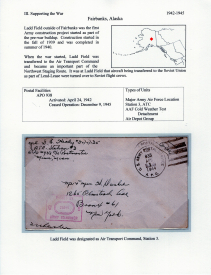 III. Supporting the War 1942-1945
Fairbanks, Alaska
Ladd Field outside of Fairbanks was the first
Army construction project started as part of
the pre-war buildup. Construction started in
the fall of 1939 and was completed in
summer of 1940.
When the war started, Ladd Field was
transferred to the Air Transport Command
and became an important part of the
Northwest Staging Route. It was at Ladd Field that aircraft being transferred to the Soviet Union
as part of Lend-Lease were turned over to Soviet flight crews.
Postal Facilities
APO 938
Activated: April 24, 1942
Ceased Operation: December 9, 1945
Types of Units
Major Army Air Force Location
Station 3, ATC
AAF Cold Weather Test
Detachment
Air Depot Group
New York
Ladd Field was designated as Air Transport Command, Station 3.